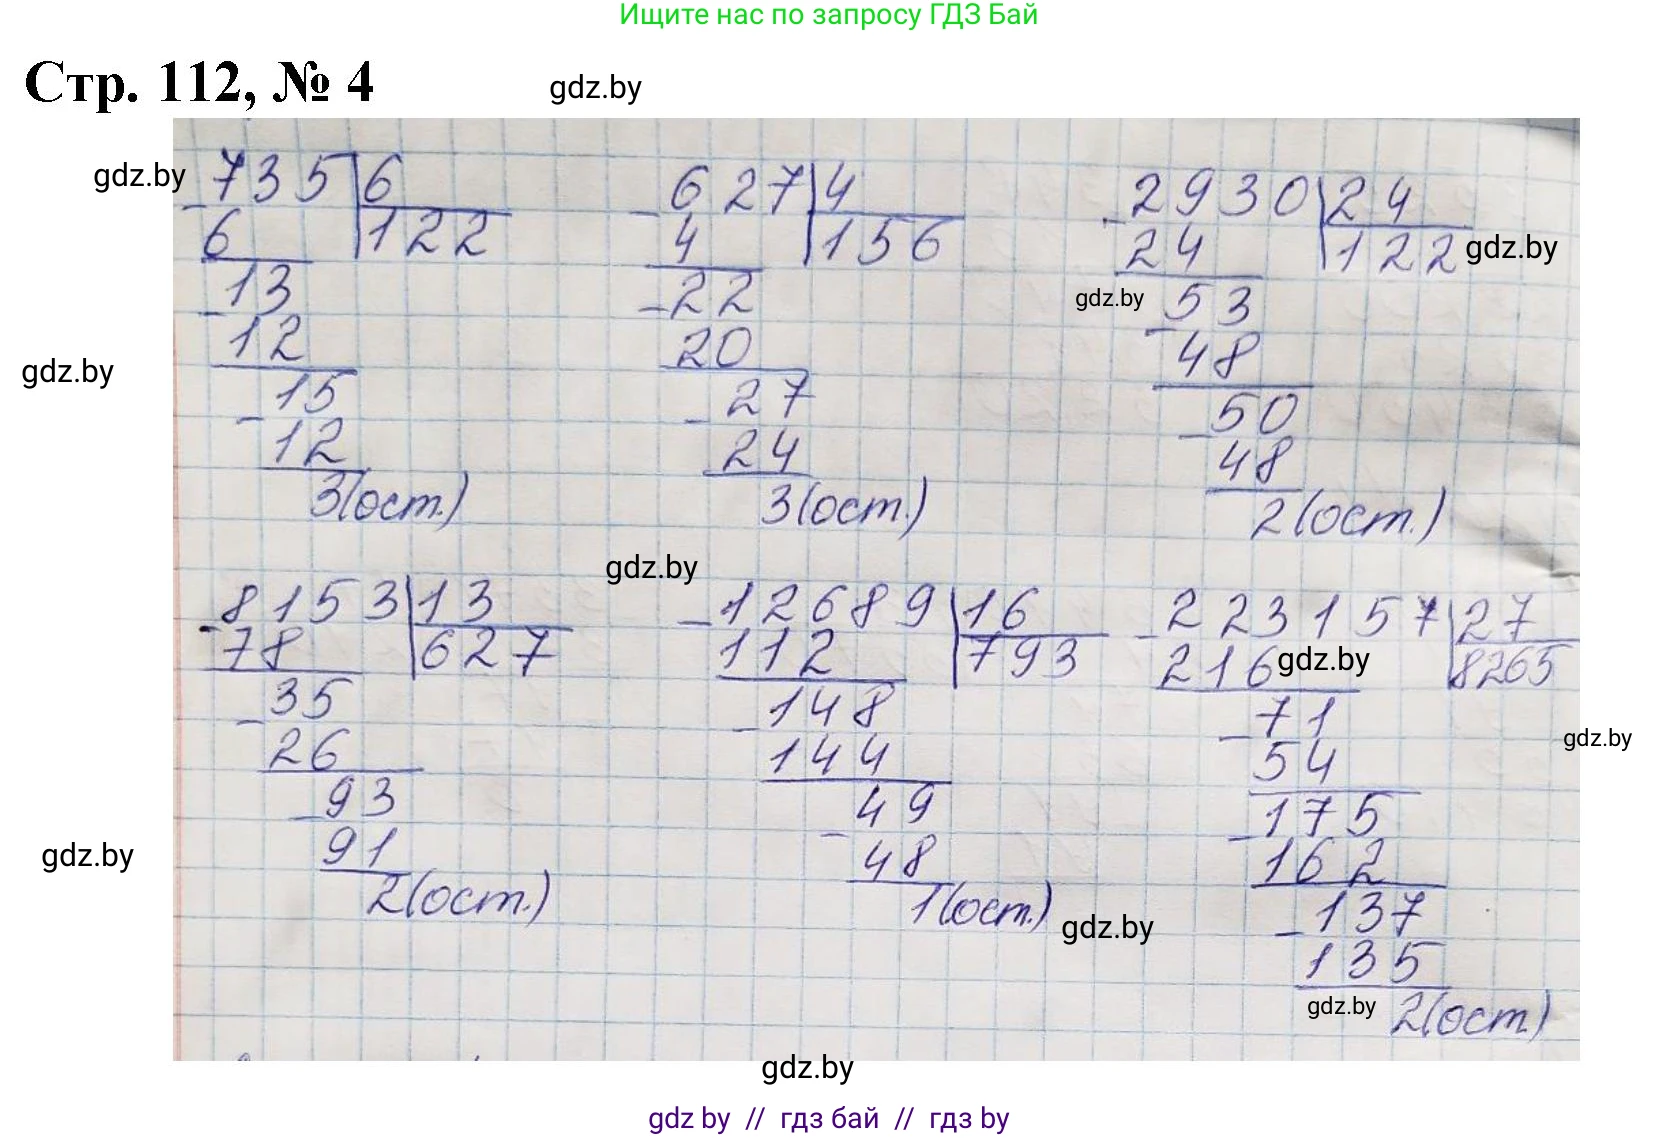 Ищите нас по запросу ГДЗ Бай
Стр. 112, № 4
gdz.by
gdz.by
735 6
6 122
13
12
15
12
3(ост.)
627 4
4 156
22
20
27
24
3(ост.)
2930 24
24 122
gdz.by
gdz.by
53
48
50
48
2(ост.)
gdz.by
gdz.by
8153 13
78 627
35
26
93
91
2(ост.)
12689 16
112 793
148
144
49
48
1(ост.)
223157 27
216 8265
gdz.by
71
54
gdz.by
175
162
137
135
2(ост.)
gdz.by
gdz.by
gdz.by
gdz.by
gdz by // гдз бай // гдз by